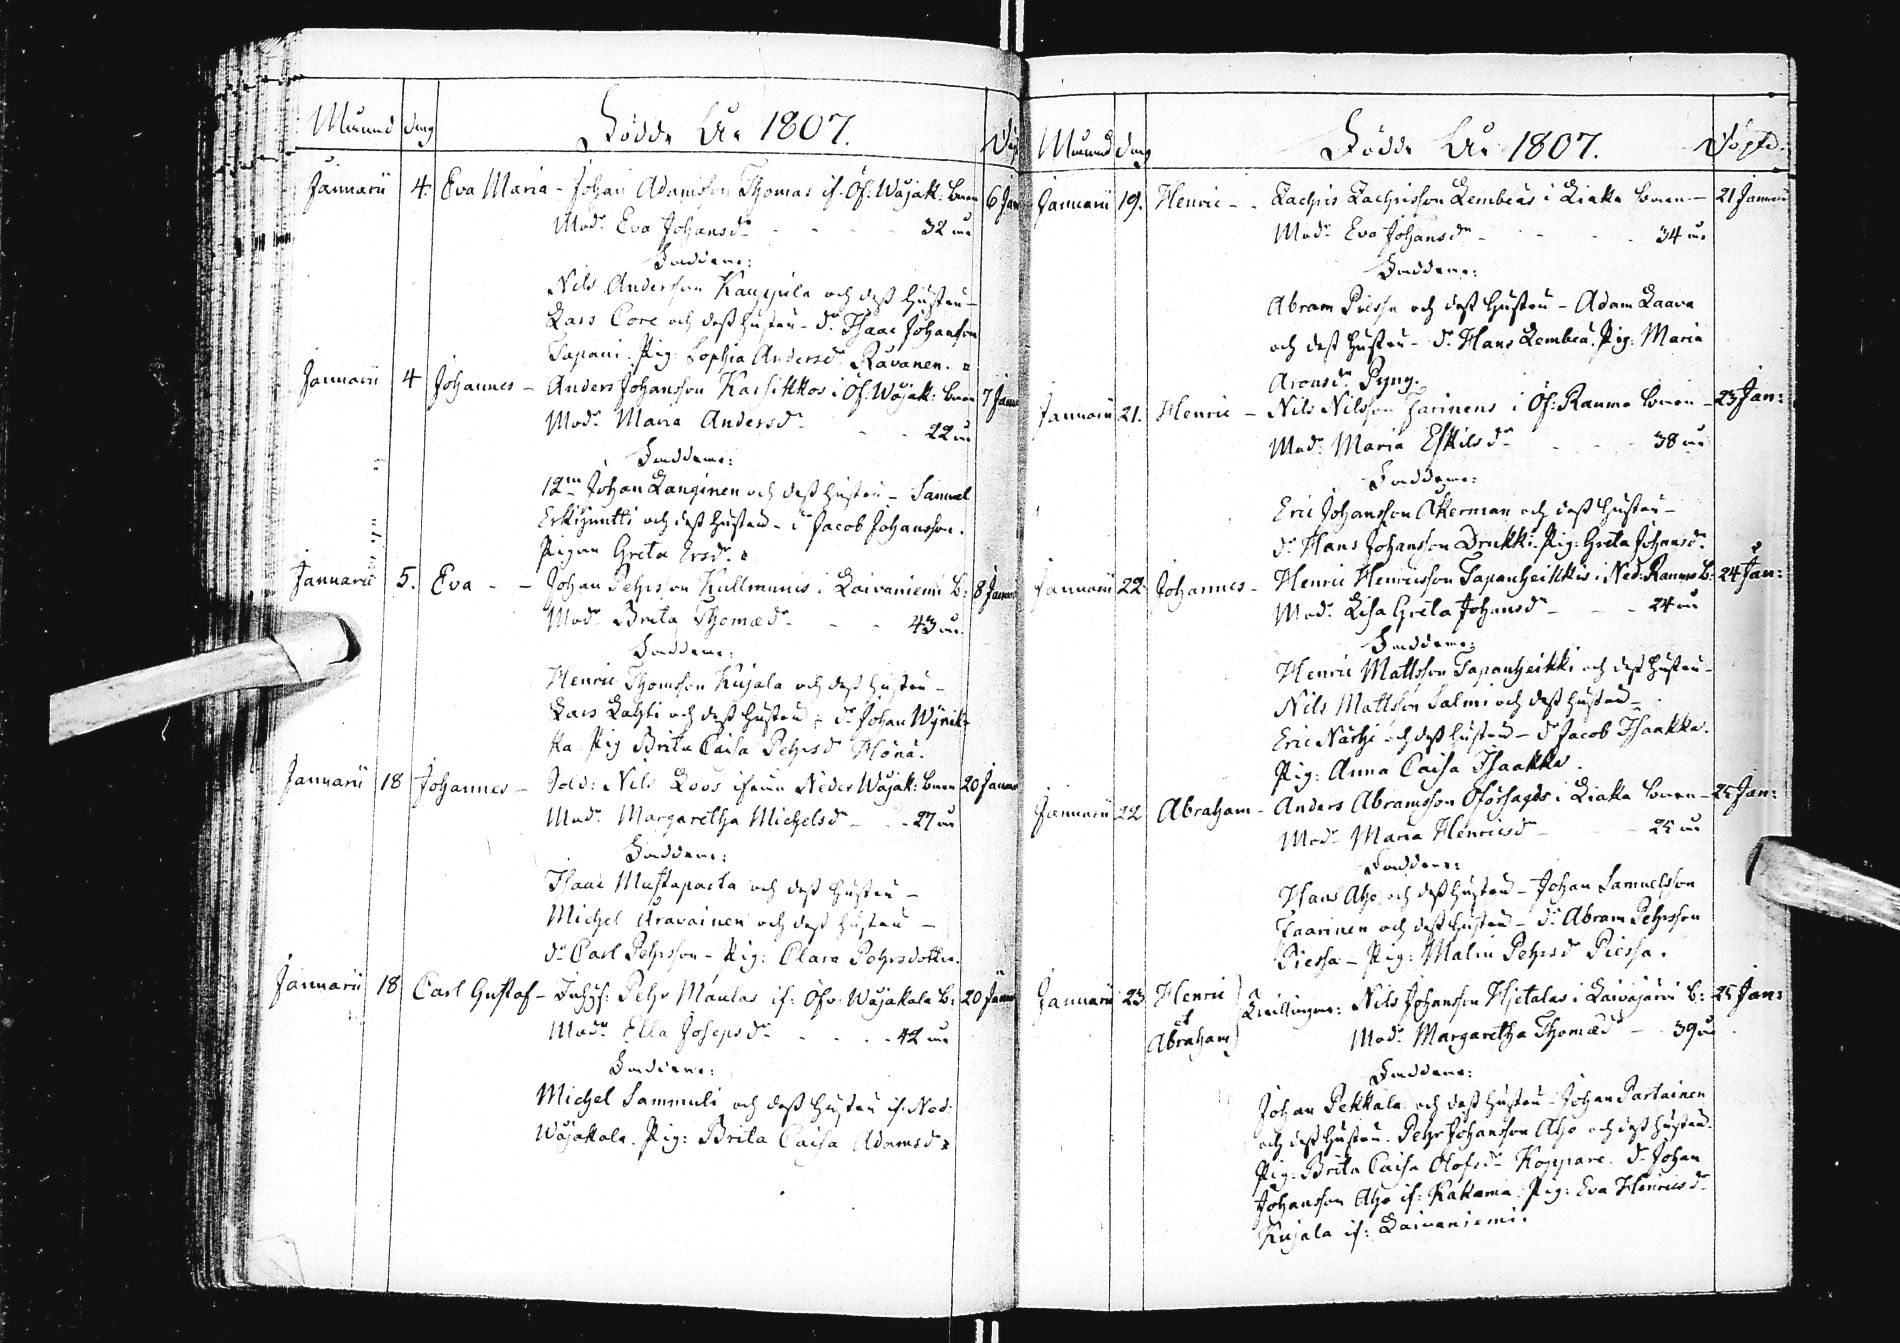 Månad dag Födde År 1807. Döp
Januarii 4. Eva Maria - Johan Adamsson Thomas if. Öf: Wojak: boren 6 Jan
Mod:r Eva Johansd:r - - - 32 år
Faddrar:
Nils Andersson Kauppila och dess hustru -
Lars Core och dess hustru - d:r Isaac Johansson
Tapani. Pig: Sophia Andersd:r Ravanen.
Januarii 4 Johannes - Anders Johansson Karsikkos i Öf: Wojak: boren 7 Janu
Mod:r Maria Andersd:r - - 22 år
Faddrar:
12:m Johan Langinen och dess hustru - Samuel
och dess hustru - d:r Jacob Johansson.
Pigan Greta Ersd:r
Januarii 5. Eva - - Johan Pehrsson Kullmunis i Laivaniemi B: 8 Januar
Mod:r Brita Thomæd:r - - 43 år.
Faddrar:
Henric Thomsson Kujala och dess hustru -
Lars Lahti och dess hustru - d:r Johan Wÿrik-
ka. Pig Brita Caisa Pehrsd:r Hönä.
Januarii 18 Johannes - Sold: Nils Koos ifrån Neder Wojak: boren 20 Januar
Mod:r Margaretha Michelsd:r - - 27 år
Faddrar:
Isaac Mustaparta och dess hustru -
Michel Aravainen och dess hustru -
d:r Carl Pehrsson - Pig: Clara Pehrsdotter.
Januarii 18 Carl Gustaf - Inhys: Pehr Maulas if: Öfv: Wojakala B: 20 Januar
Mod:r Ella Josepsd:r - - - 42 år
Faddrar:
Michel Sammuli och dess hustru if. Ned:
Wojakala. Pig: Brita Caisa Adamsd:r
Månad Dag Födde År 1807. Döpte.
Januarii 19. Henric - - Zachris Zachrisson Lembeas i Liakka boren - 21 Januarii
Mod:r Eva Johansd:r - - - 34 år
Faddrar:
Abram Piessa och dess hustru - Adam Laava
och dess hustru - d:r Hans Lembea. Pig: Maria
Aronsd:r Pyny.
Januarii 21. Henric - Nils Nilsson Harinens i Öf: Raumo boren - 23 Jan:
Mod:r Maria Eskilsd:r - - - 38 år
Faddrar:
Eric Johansson Åkerman och dess hustru -
d:r Hans Johansson Drukki. Pig: Greta Johansd:r
Januarii 22. Johannes - Henric Henricsson Tapanheikkis i Ned: Raumo B: 24 Jan:
Mod:r Lisa Greta Johansd:r - - 24 år
Faddrar:
Henric Mattsson Tapanheikki och dess hustru -
Nils Mattsson Salmi och dess hustru -
Eric Närhi och dess hustru - d:r Jacob Isaakka.
Pig: Anna Caisa Isaakka.
Januarii 22 Abraham - Anders Abramsson i Liakka boren - 25 Jan:
Mod:r Maria Henricsd:r - - 25 år
Faddrar:
Hans Aho och dess hustru - Johan Samuelsson
Kaarinen och dess hustru - d:r Abram Pehrsson
Piessa - Pig: Malin Pehrsd:r Piessa.
Januarii 23. Henric et Abraham Tvillingar: Nils Johansson Hietalas i Laivajärvi B: 25 Jan:
Mod:r Margaretha Thomæd:r - 39 år
Faddrar:
Johan Pekkala och dess hustru - Johan Partainen
och dess hustru. Pehr Johansson Aho och dess hustru.
Pig: Brita Caisa Olofsd:r Koppare. d:r Johan
Johansson Aho if: Kakama. Pig: Eva Henricsd:r
Kujala if: Laivaniemi.